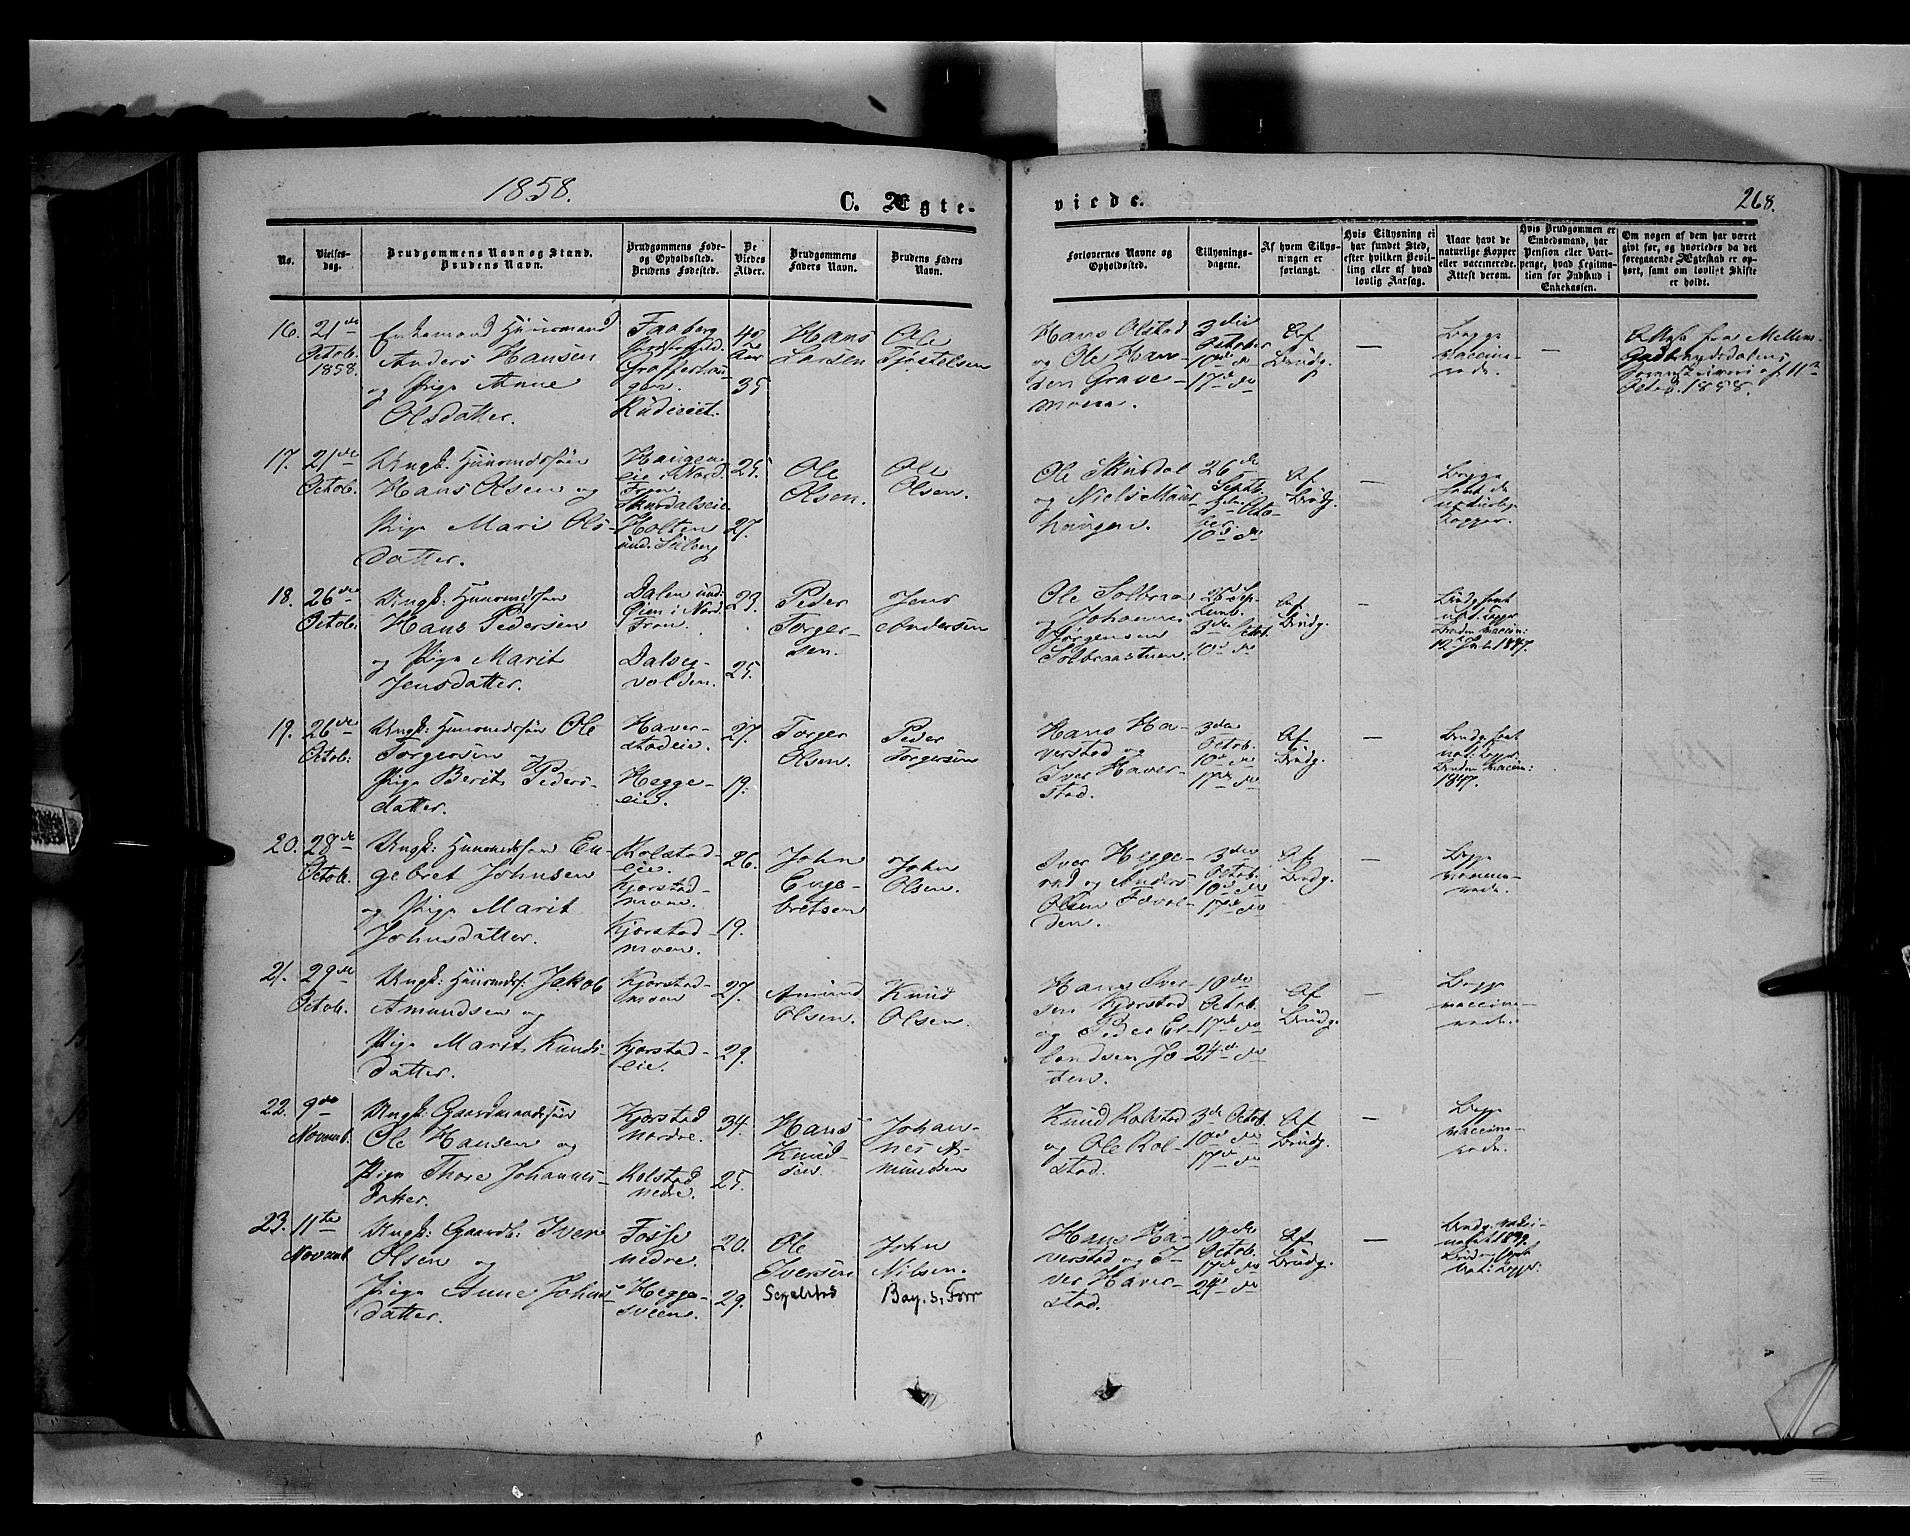 1858.
C. Ægte-
viede.
268.
No.
Vielses-
dag.
Brudgommens Navn og Stand.
Brudens Navn.
Brudgommens Føde-
og Opholdssted.
Brudens Fødested.
De
Viedes
Alder.
Brudgommens
Faders Navn.
Brudens Faders
Navn.
Forlovernes Navne og
Opholdssted.
Tillysnings-
dagene.
Af hvem Tillys-
ningen er
forlangt.
Hvis Tillysning ei
har fundet Sted,
efter hvilken Bevil-
ling eller af hvad
lovlig Aarsag.
Naar havt de
naturlige Kopper
eller vaccinerede.
Attest derom.
Hvis Brudgommen er
Embedsmand, har
Pension eller Vart-
penge, hvad Legitima-
tion for Indskud i
Enkekassen.
Om nogen af dem har været
gift før, og hvorledes da det
foregaaende Ægteskab er op-
hørt, samt om lovligt Skifte
er holdt.
16.
21de
Octob.
1858.
Enkemand Huusmand
Anders Hansen
og Pige Anne
Olsdatter.
Faaberg
Rudieiet.
40
Aar
35
Hans
Larsen
Ole
Tjøstelsen
Hans Olstad
og Ole Han-
sen Grave-
moen.
3die
October
10de do
17de do
Af
Brudg.
—
Begge
vaccine-
rede.
—
Octob. 1858.
17.
21de
Octob.
Ungk. Huusmdssøn
Hans Olsen og
Pige Mari Ols-
datter.
Haugen-
eie i Nord
Fron.
Skurdalseie
Holten
25.
27.
Ole
Olsen.
Ole
Olsen.
Ole Skurdal
og Niels Maur-
haugen.
26de
Septb.
3die Octo
ber.
10de do
Af
Brudg.
—
Begge
havt de
naturlige
Kopper.
18.
26de
Octob.
Ungk: Huusmdssøn
Hans Pedersen
og Pige Marit
Jensdatter.
Dalen und:
Øien i Nord
Fron.
Dalseg-
volden.
23.
25.
Peder
Torger-
sen.
Jens
Andersen
Ole Solbraa
og Johannes
Jørgensen
Solbraastuen.
26de Sep-
temb.
3de Octob.
10de do
Af
Brudg.
—
Brudg. havt
nat. Kopper
Bruden vaccin:
12 Juli 1847.
19.
26de
Octob.
Ungk: Huusmdssøn Ole
Torgersen og
Pige Berit Peders-
datter.
Haver-
stadeie.
Hegge-
eie.
27.
19.
Torger
Olsen.
Peder
Torgersen
Hans Ha-
verstad og
Iver Haver-
stad.
3die
Octob.
10de do
17de do
Af
Brudg.
—
Brudg. havt
nat: Kopper.
Bruden vaccin:
1847.
20.
28de
Octob.
Ungk: Huusmdssøn En-
gebret Johnsen
og Pige Marit
Johnsdatter.
Kolstad-
eie.
Kjorstad-
moen.
Kjorstad-
moen.
26.
19.
John
Enge-
bretsen
John
Olsen.
Iver Hegge-
rud og Anders
Olsen
den.
3die
Octob.
10de do
17de do
Af
Brudg.
—
Begge
vaccine-
rede.
21.
29de
Octob.
Ungk: Huusmds: Jakob
Amundsen og
Pige Marit Knuds-
datter.
Kjorstad-
moen
Kjorstad-
eie.
27.
29.
Amund
Olsen.
Knud
Olsen.
Hans Iver-
sen Kjorstad
og Peder Er-
landsen Jo
den.
10de
Octob.
17de do
24de do
Af
Brudg.
—
Begge
vaccine-
rede.
22.
9de
Novemb.
Ungk: Gaardmandssøn
Ole Hansen og
Pige Thore Johannes-
datter.
Kjorstad
nordre.
Rolstad
nedre.
34.
25.
Hans
Knud-
sen.
Johan-
nes A-
mundsen
Knud Rolstad
og Ole Rol-
stad.
3de Octob.
10de do
17de do
Af
Brudg.
—
Begge
vaccine-
rede.
23.
11te
Novemb.
Ungk: Gaardb: Iver
Olsen og
Pige Anne Johns-
datter.
Fosse
nedre.
Hegge-
sveen.
20.
29.
Ole
Iversen
Segelstad
John
Nilsen.
Bay. s. Forr
Hans Ha-
verstad og I-
ver Haver-
stad.
10de
Octob.
17de do
24de do
Af
Brudg.
—